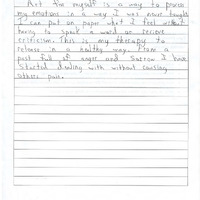 Art for myself is a way to process
my emotions in a way I was never taught
I can put on paper what I feel without
having to speak a word or recieve
criticism. This is my therapy to
release in a healthy way. From a
past full of anger and Sorrow I have
Started dealing with without causing
others pain.